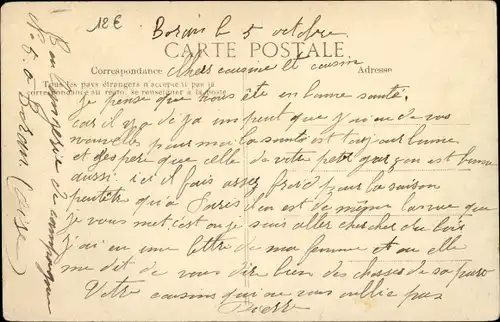 12 €
Boran le 5 octobre
CARTE POSTALE
Correspondance
Adresse
Tous les pays étrangers n'acceptent pas la
correspondance au recto, se renseigner à la poste
Chers cousine et cousin
Je pense que vous ête en bonne santé
car il y a déja un peut que j'ai eu de vos
nouvelles pour moi la santé est toujour bonne
et despère que celle de votre petit garçon est bonne
aussi ici il fais assez froid pour la saison
peutêtre qu'a Paris s'en est de même la vue que
je vous met c'est ou je suis aller chercher du bois
j'ai eu une lettre de ma femme et elle
me dit de vous dire bien des choses de sa part
Votre cousin qui ne vous oublie pas
Pierre
Boulangerie de campagne
No 5 a Boran (Oise)